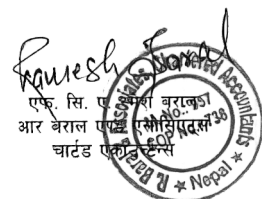 Ramesh Baral
एफ. सि. ए. रमेश बराल
आर बराल एण्ड एसोसिएट्स
चार्टड एकाउन्टेन्टस
R. Baral & Associates, Chartered Accountants
COP No.
★ Nepal ★